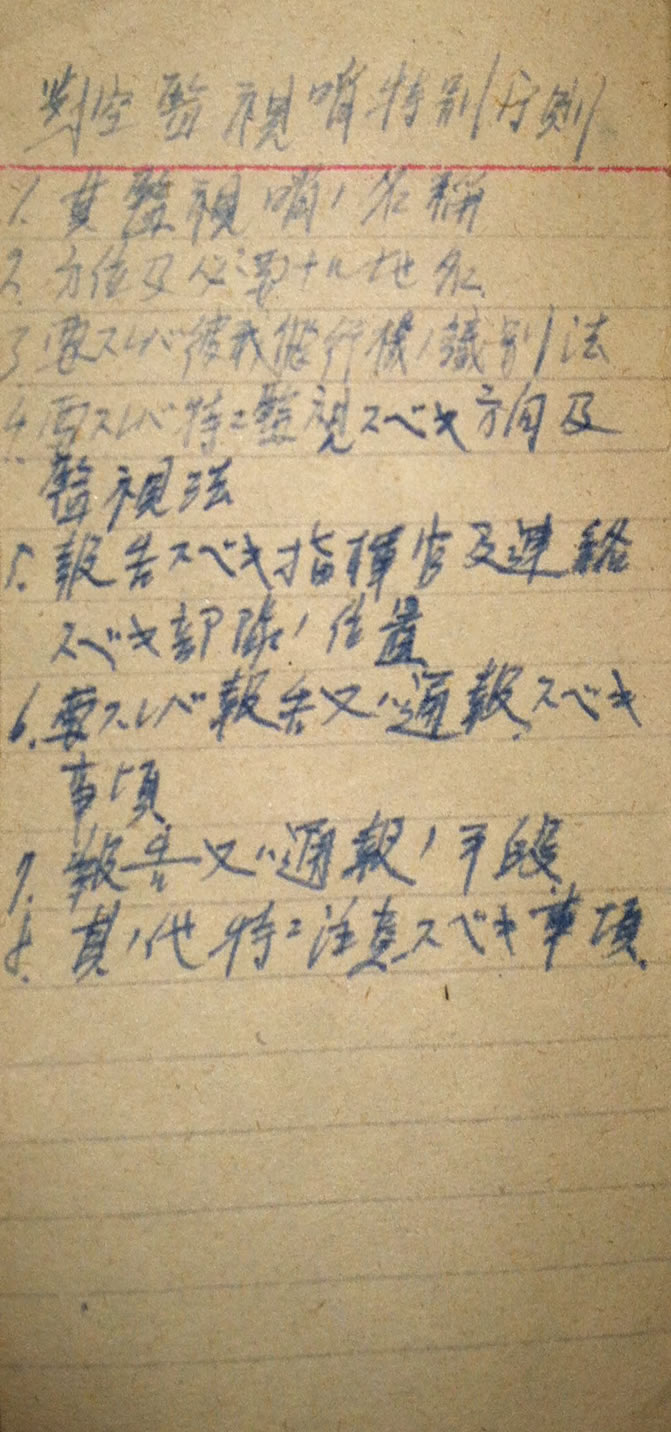 対空監視哨特別守則
1. 其監視哨ノ名称
2. 方位及必要ナル地名
3. 要スレバ彼我飛行機ノ識別法
4. 要スレバ特ニ監視スベキ方向及
監視法
5. 報告スベキ指揮官及連絡
スベキ部隊ノ位置
6. 要スレバ報告又ハ通報スベキ
事項
7. 報告又ハ通報ノ手段
8. 其ノ他特ニ注意スベキ事項